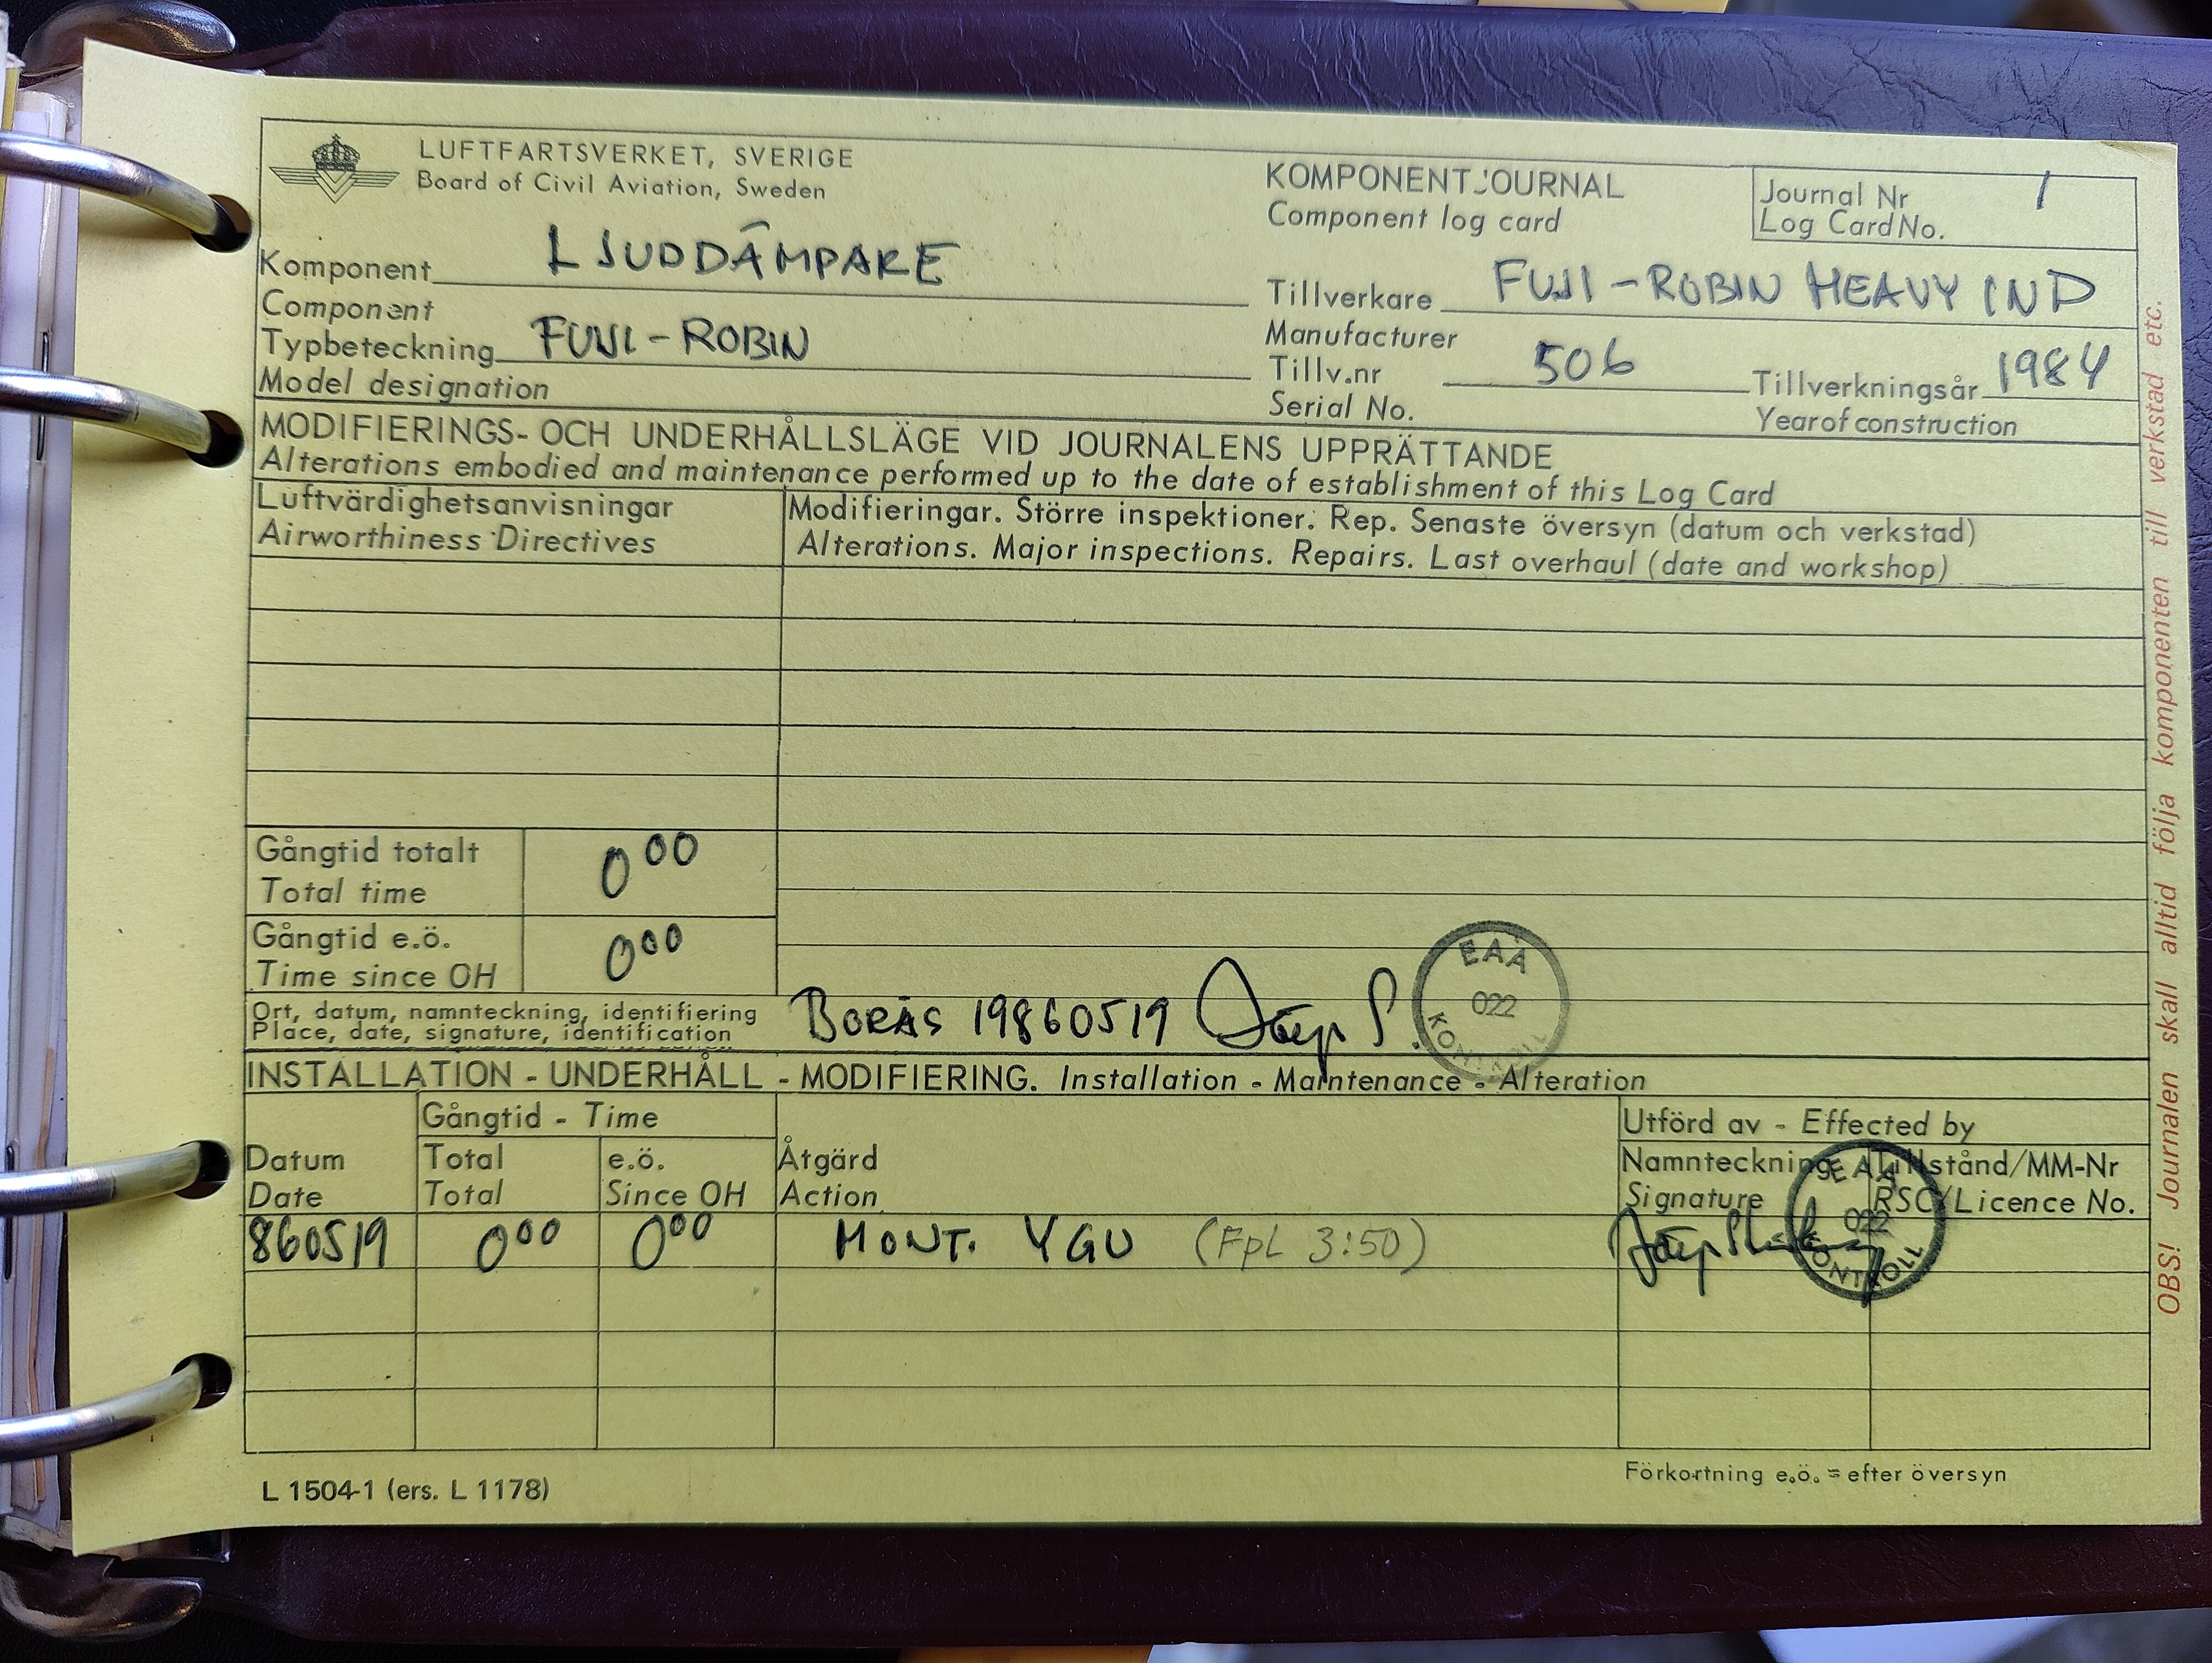 LUFTFARTSVERKET, SVERIGE
Board of Civil Aviation, Sweden
KOMPONENTJOURNAL
Component log card
Journal Nr 1
Log Card No.
Komponent LJUDDÄMPARE
Component
Tillverkare FUJI-ROBIN HEAVY IND
Manufacturer
Typbeteckning FUJI-ROBIN
Model designation
Tillv.nr 506
Serial No.
Tillverkningsår 1984
Year of construction
MODIFIERINGS- OCH UNDERHÅLLSLÄGE VID JOURNALENS UPPRÄTTANDE
Alterations embodied and maintenance performed up to the date of establishment of this Log Card
Luftvärdighetsanvisningar
Airworthiness Directives
Modifieringar. Större inspektioner. Rep. Senaste översyn (datum och verkstad)
Alterations. Major inspections. Repairs. Last overhaul (date and workshop)
Gångtid totalt
Total time
0 00
Gångtid e.ö.
Time since OH
0 00
Ort, datum, namnteckning, identifiering
Place, date, signature, identification
BORÅS 19860519
EAA
022
KONTROLL
INSTALLATION - UNDERHÅLL - MODIFIERING. Installation - Maintenance - Alteration
Datum
Date
Gångtid - Time
Total
Total
e.ö.
Since OH
Åtgärd
Action
Utförd av - Effected by
Namnteckning
Signature
Tillstånd/MM-Nr
RSC/Licence No.
EAA
022
KONTROLL
860519 0 00 0 00 MONT. YGU (Fpl 3:50)
L 1504-1 (ers. L 1178)
Förkortning e.ö. = efter översyn
OBS! Journalen skall alltid följa komponenten till verkstad etc.